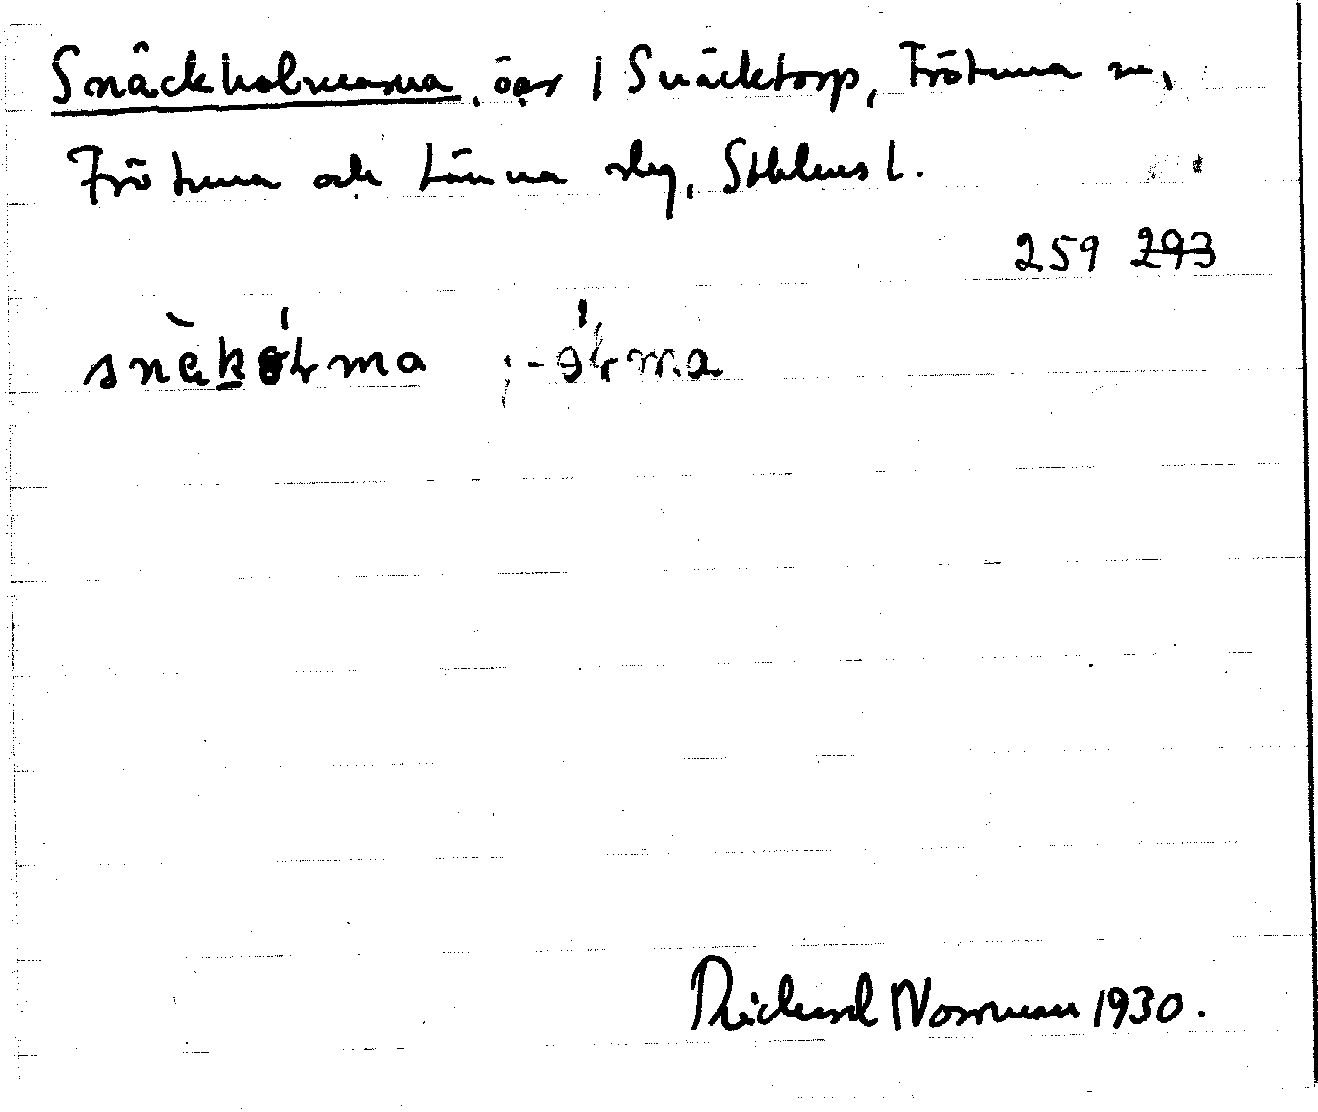 Snäckholmarna, öar / Snäcktorp, Frötuna sn,
Frötuna och Länna slg, Sthlms l.
259 293
snäkọ̀lma ; -ọlma
Rickard Norrman 1930.